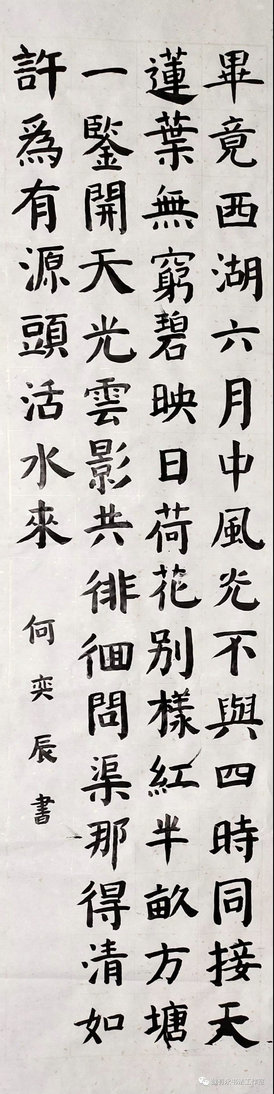 畢竟西湖六月中風光不與四時同接天
蓮葉無窮碧映日荷花別樣紅半畝方塘
一鑒開天光雲影共徘徊問渠那得清如
許為有源頭活水來
何奕辰書